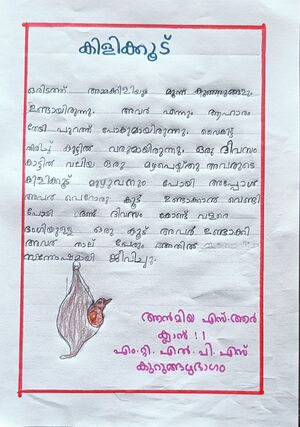 കിളിക്കൂട്
ഒരിടത്ത് അമ്മക്കിളിയും മൂന്ന് കുഞ്ഞുങ്ങളും
ഉണ്ടായിരുന്നു. അവർ എന്നും ആഹാരം
തേടി പുറത്ത് പോകുമായിരുന്നു. വൈകിട്ട്
തിരിച്ച് കൂട്ടിൽ വരുമായിരുന്നു. ഒരു ദിവസം
കാട്ടിൽ വലിയ ഒരു മഴപെയ്തു അവരുടെ
കിളിക്കൂട് മുഴുവനും പോയി അപ്പോൾ
അവർ വെറൊരു കൂട് ഉണ്ടാക്കാൻ വേണ്ടി
പോയി രണ്ട് ദിവസം കോണ്ട് വളരെ
ഭംഗിയുള്ള ഒരു കൂട് അവർ ഉണ്ടാക്കി
അവർ നാല് പേരും അതിൽ
സന്തോഷമായി ജീവിച്ചു.
ആൻമിയ എസ്.ആർ
ക്ലാസ് 11
എം.റ്റി. എൽ. പി. എസ്
കുറുങ്ങഴഭാഗം